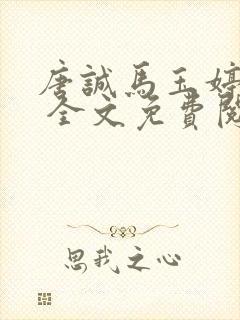 唐誠馬玉婷
全文免費閱
思我之心